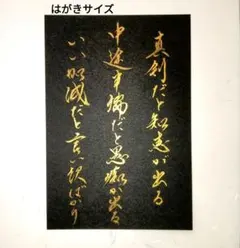 はがきサイズ
真剣だと知恵が出る
中途半端だと愚痴が出る
いい加減だと言い訳ばかり